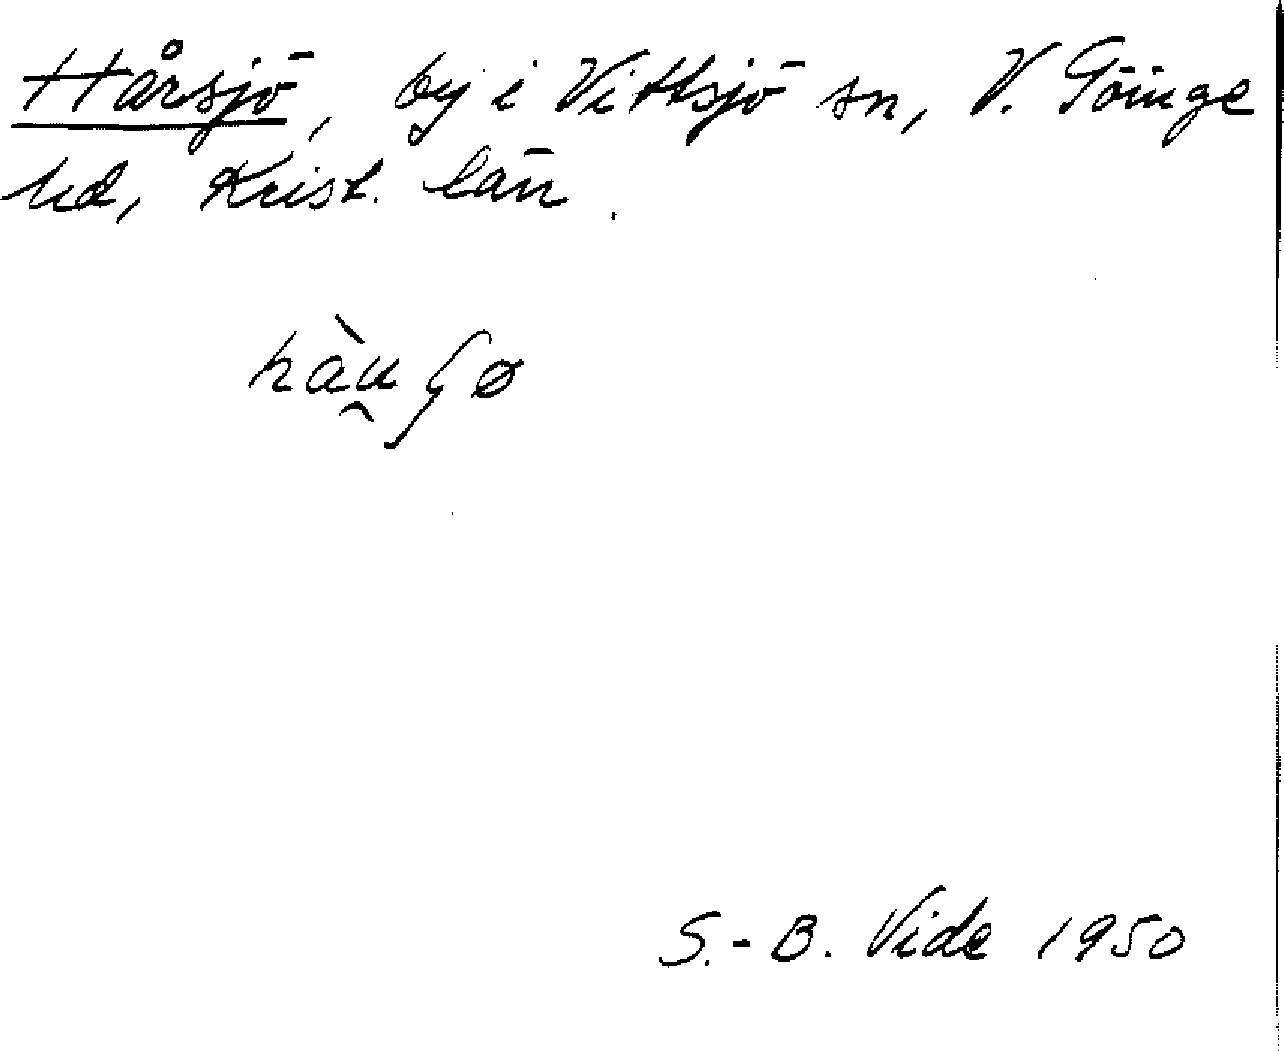 Hårsjö, by i Vittsjö sn, V. Göinge
hd, Krist. län.
hàu̯ʃø
S.-B. Vide 1950